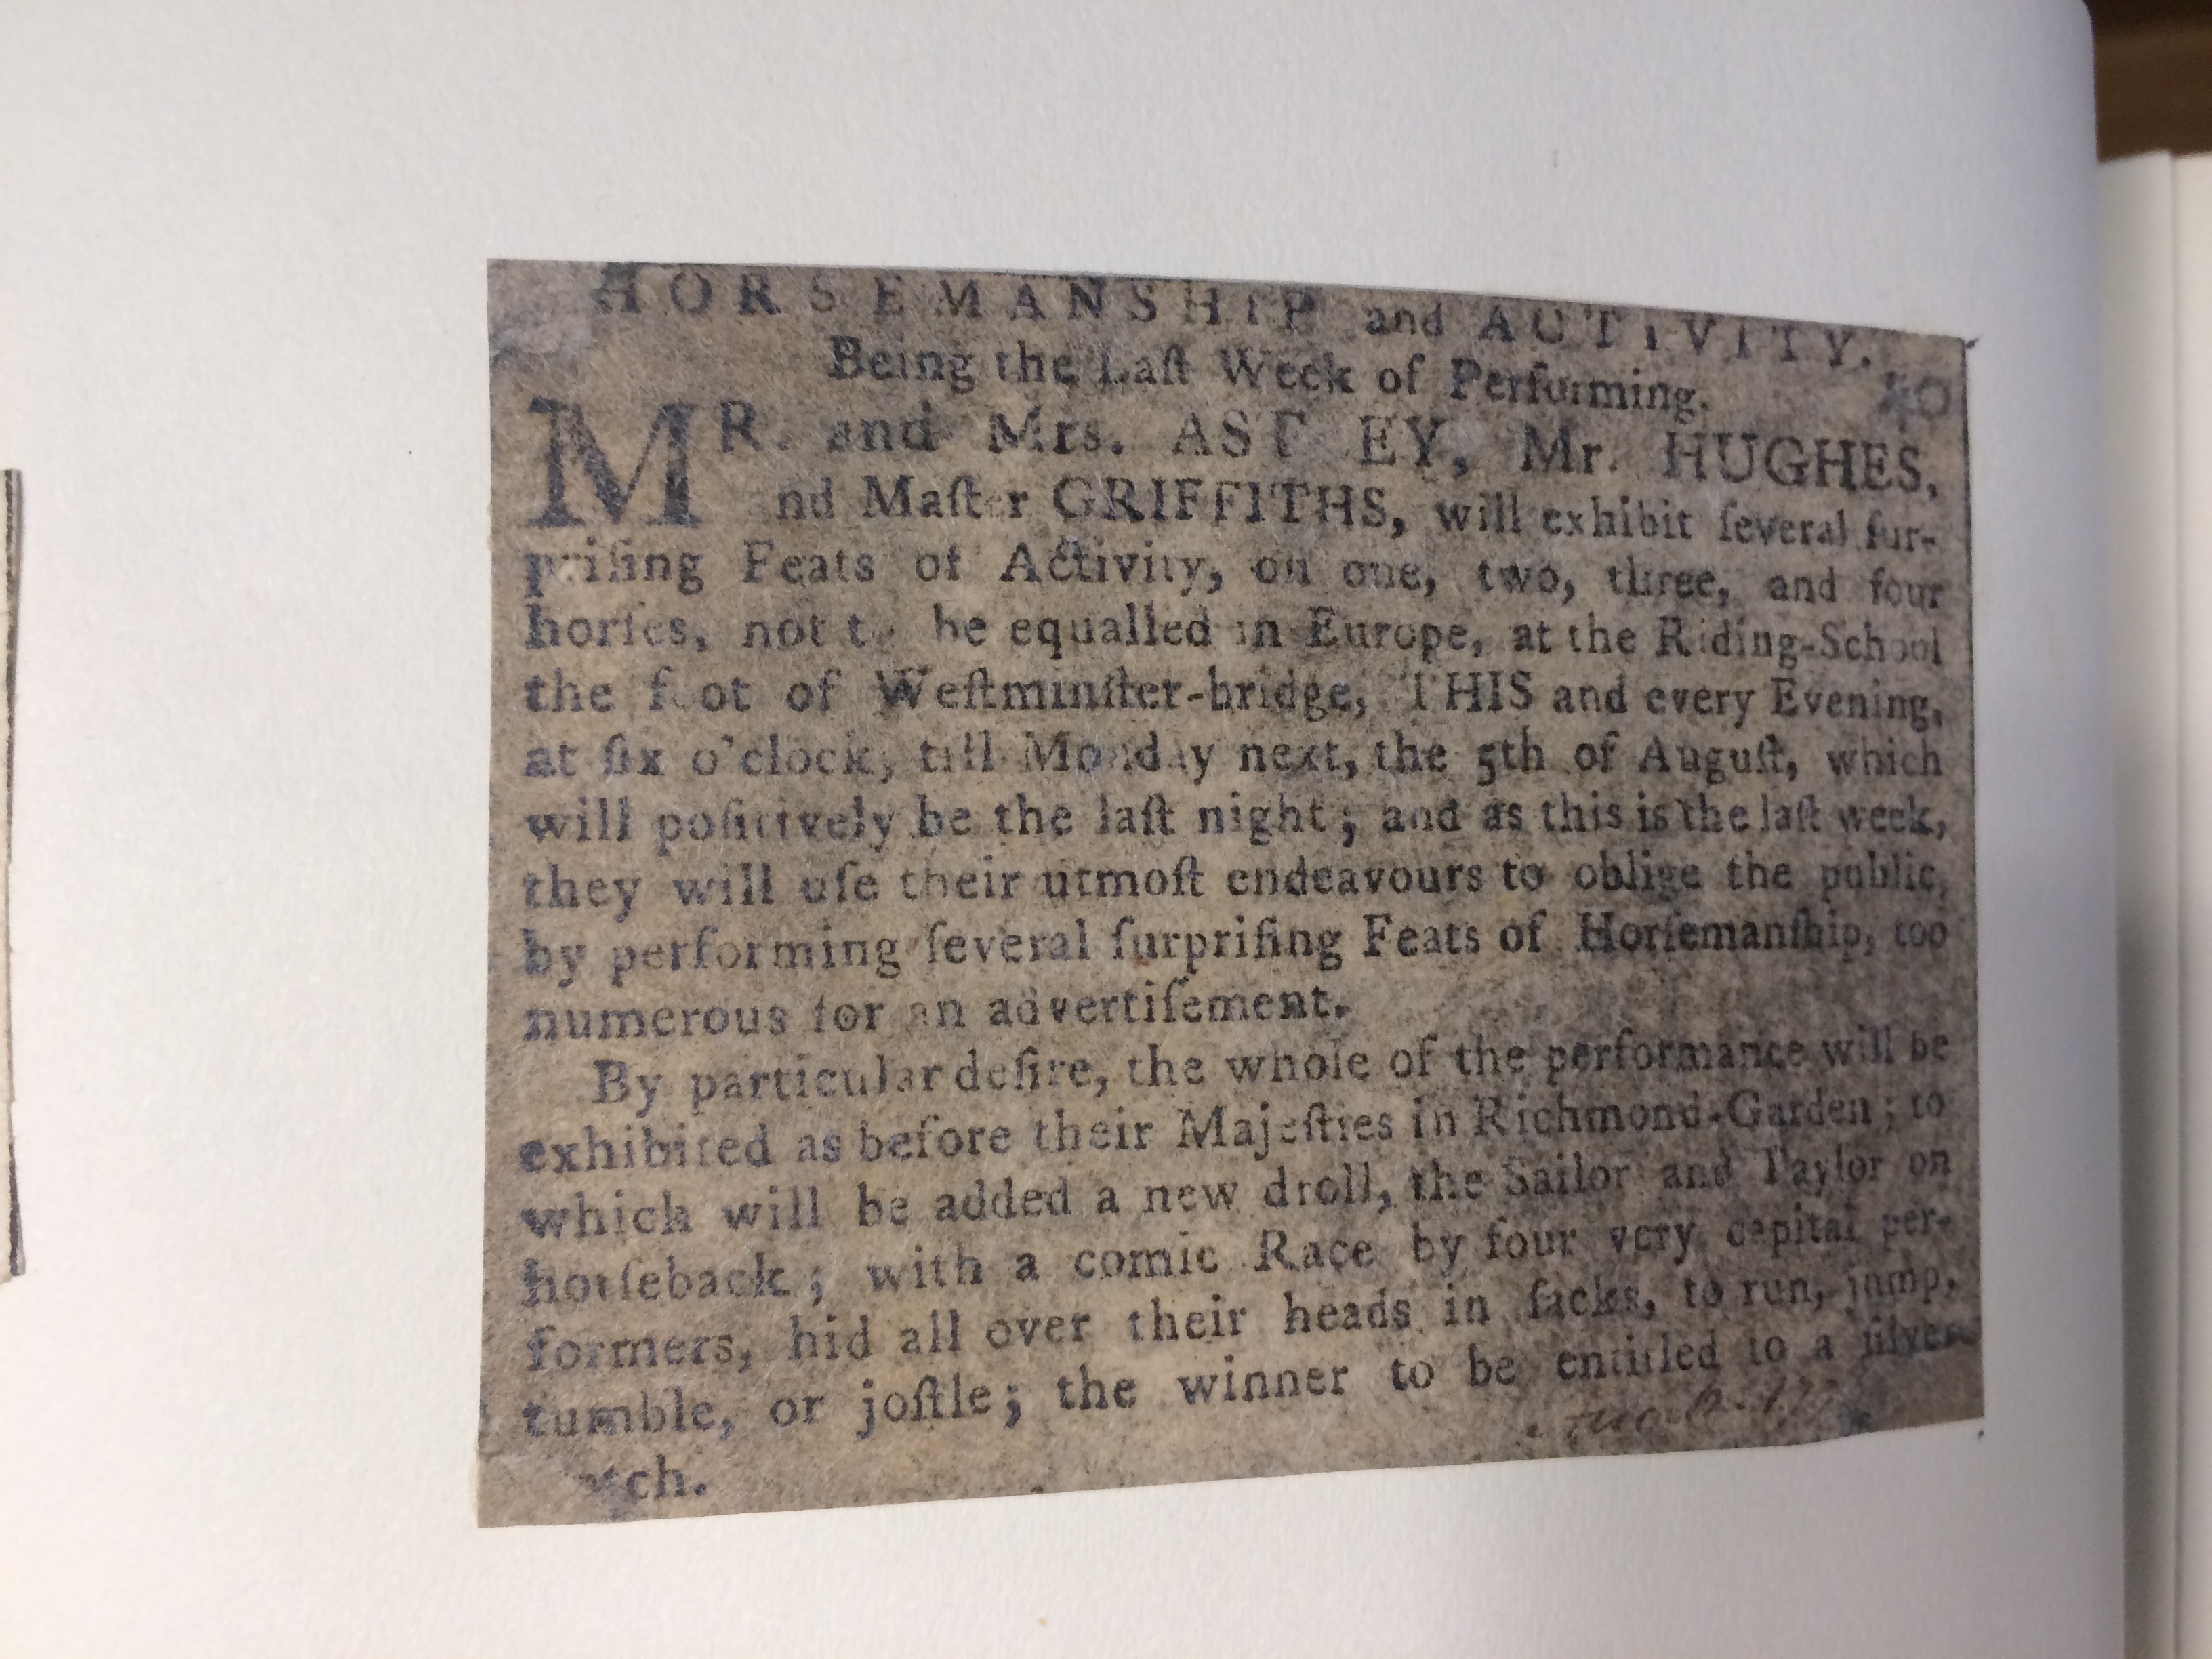 HORSEMANSHIP and ACTIVITY.
Being the Laſt Week of Performing.
40
MR. and Mrs. ASTLEY, Mr. HUGHES,
and Maſter GRIFFITHS, will exhibit ſeveral ſur-
priſing Feats of Activity, on one, two, three, and four
horſes, not to be equalled in Europe, at the Riding-School
the foot of Weſtminſter-bridge, THIS and every Evening,
at ſix o'clock, till Monday next, the 5th of Auguſt, which
will poſitively be the laſt night; and as this is the laſt week,
they will uſe their utmoſt endeavours to oblige the public,
by performing ſeveral ſurpriſing Feats of Horſemanſhip, too
numerous for an advertiſement.
By particular deſire, the whole of the performance will be
exhibited as before their Majeſties in Richmond-Garden; to
which will be added a new droll, the Sailor and Taylor on
horſeback; with a comic Race by four very capital per-
formers, hid all over their heads in ſacks, to run, jump,
tumble, or joſtle; the winner to be entitled to a ſilver
watch.